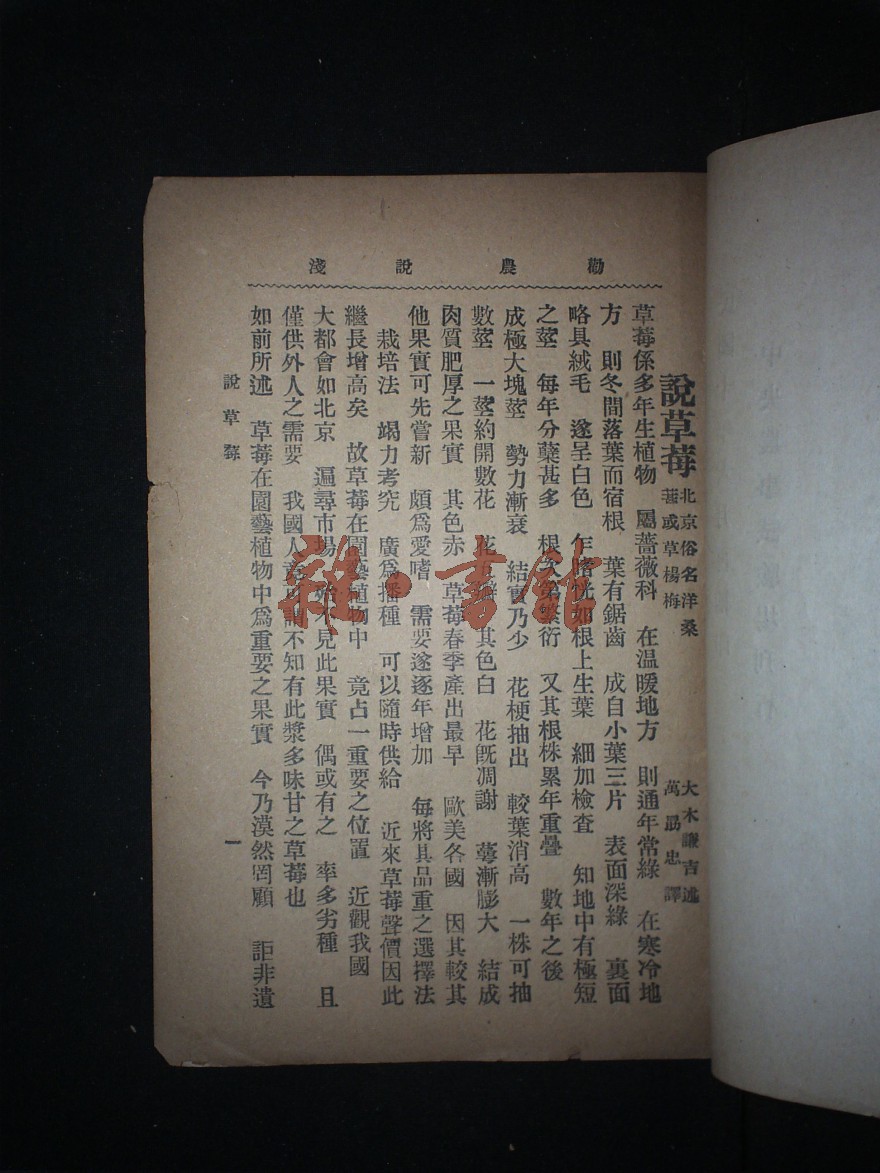 勸農說淺
說草莓
北京俗名洋桑
葚或草楊梅
大木謙吉述
萬勗忠譯
草莓係多年生植物 屬薔薇科 在温暖地方 則通年常綠 在寒冷地
方 則冬間落葉而宿根 葉有鋸齒 成自小葉三片 表面深綠 裏面
略具絨毛 遂呈白色 乍睹恍如根上生葉 細加檢查 知地中有極短
之莖 每年分蘖甚多 根次第繁衍 又其根株累年重疊 數年之後
成極大塊莖 勢力漸衰 結實乃少 花梗抽出 較葉消高 一株可抽
數莖 一莖約開數花 花五瓣 其色白 花既凋謝 蕚漸膨大 結成
肉質肥厚之果實 其色赤 草莓春季產出最早 歐美各國 因其較其
他果實可先嘗新 頗爲愛嗜 需要遂逐年增加 每將其品重之選擇法
栽培法 竭力考究 廣爲播種 可以隨時供給 近來草莓聲價因此
繼長增高矣 故草莓在園藝植物中 竟占一重要之位置 近觀我國
大都會如北京 遍尋市場 殆不見此果實 偶或有之 率多劣種 且
僅供外人之需要 我國人竟可謂不知有此漿多味甘之草莓也
如前所述 草莓在園藝植物中爲重要之果實 今乃漠然罔顧 詎非遺
說草莓
一